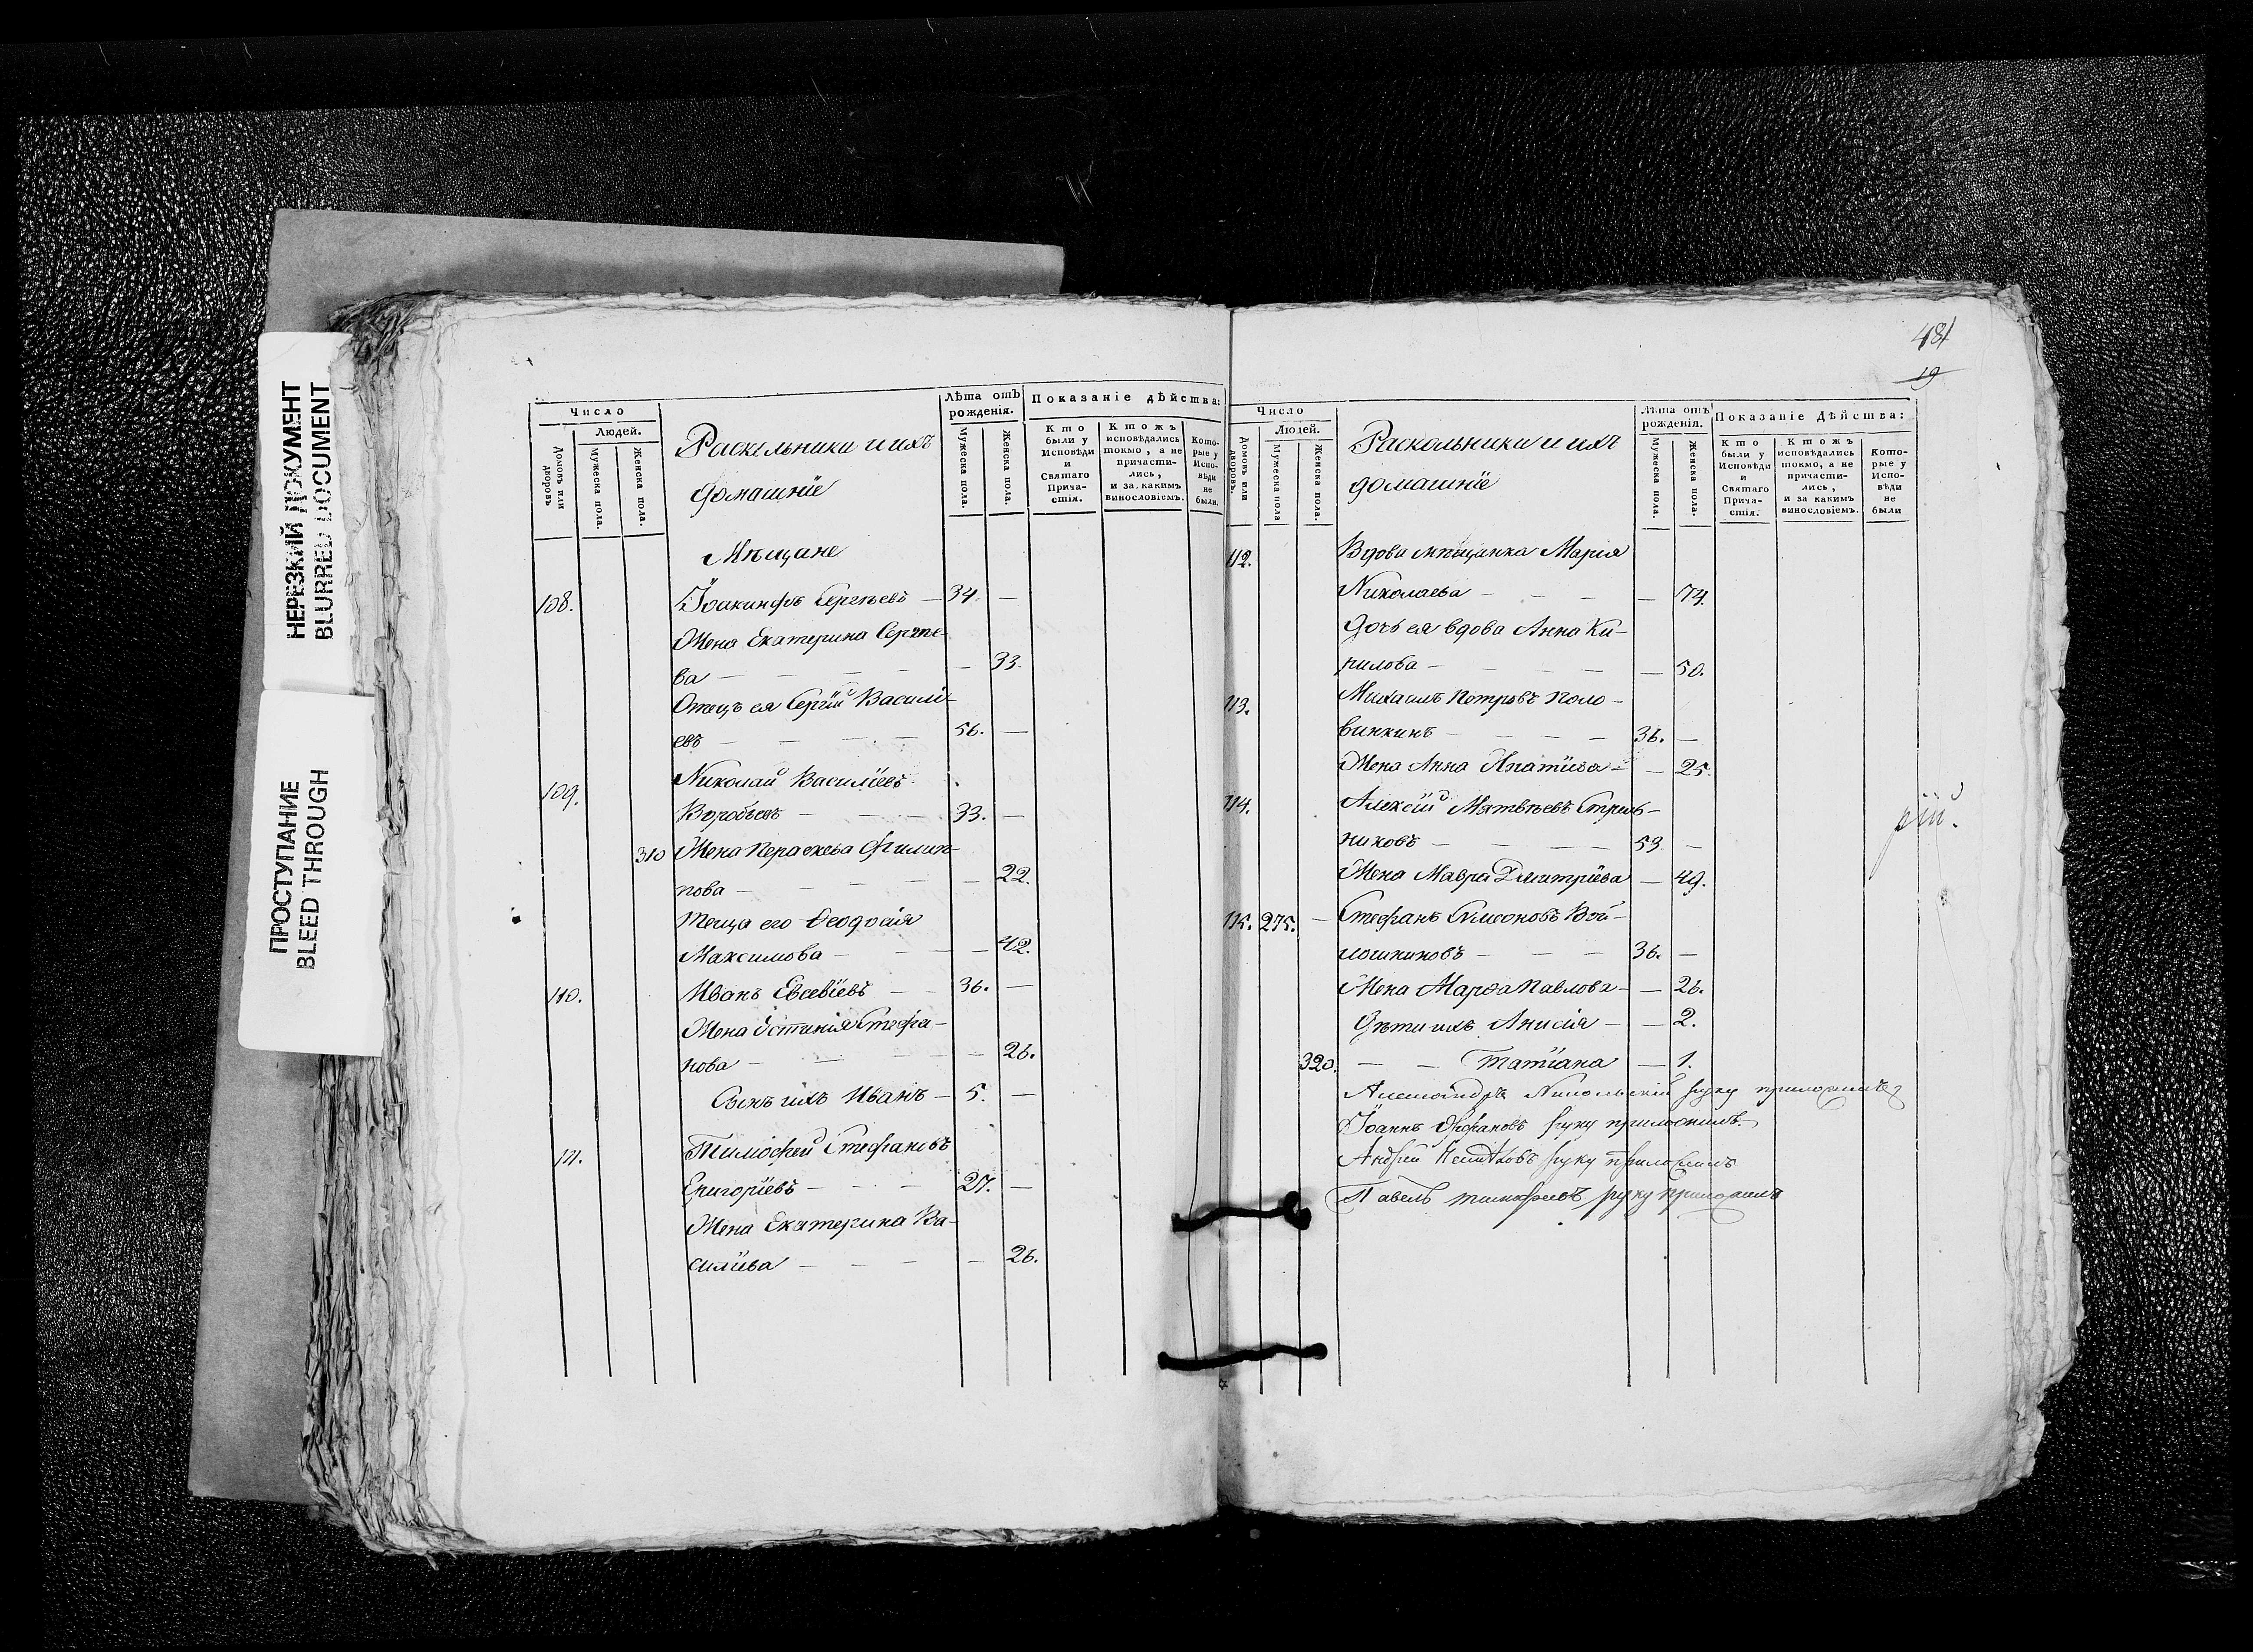 НЕРЕЗКИЙ ДОКУМЕНТ
BLURRED DOCUMENT
ПРОСТУПАНИЕ
BLEED THROUGH
Число
Людей.
Домовъ или дворовъ
Мужеска пола.
Женска пола.
Раскольники и ихъ
домашніе
Лѣта отъ рожденія.
Мужеска пола.
Женска пола.
Показаніе дѣйства:
Кто были у Исповѣди и Святаго Причастія.
Ктожъ исповѣдались токмо, а не причастились, и за какимъ винословіемъ.
Которые у Исповѣди не были.
Мѣщане
108. Іоакинфъ Сергѣевъ — 34. —
Жена Екатерина Сергѣе-
ва — — — — — 33.
Отецъ ея Сергій Василі-
евъ — — — — 56. —
109. Николай Василіевъ
Воробьевъ — — — 33. —
310 Жена Параскева Филип-
пова — — — — — 22.
Теща его Ѳеодосія
Максимова — — — 42.
110. Иванъ Евсевіевъ — — 36. —
Жена Устинія Стефа-
нова — — — — 26.
Сынъ ихъ Иванъ — 5. —
111. Тимофей Стефановъ
Григоріевъ — — — 27. —
Жена Екатерина Ва-
силіева — — — — 26.
481
19
Число
Людей.
Домовъ или дворовъ.
Мужеска пола
Женска пола.
Раскольники и ихъ
домашніе
Лѣта отъ рожденія.
Мужеска пола.
Женска пола.
Показаніе Дѣйства:
Кто были у Исповѣди и Святаго Причастія.
Ктожъ исповѣдались токмо, а не причастились, и за какимъ винословіемъ.
Которые у Исповѣди не были
112. Вдова мѣщанка Марія
Николаева — — — — 74.
Дочь ея вдова Анна Ки-
рилова — — — — 50.
113. Михаилъ Петровъ Поло-
винкинъ — — — — 36. —
Жена Анна Ипатіева — — 25.
114. Алексій Матвѣевъ Стрѣль-
никовъ — — — — 53 —
Жена Мавра Дмитріева — 49.
115. 275. — Стефанъ Симеоновъ Вой-
лошниковъ — — — 36. —
Жена Марѳа Павлова — — 26.
Дѣти ихъ Анисія — — 2.
320. — — Татіана — 1.
Александръ Никольскій руку приложилъ
Іоаннъ руку приложилъ
Андрей руку приложилъ
Павелъ Тимофеевъ руку приложилъ
рій.